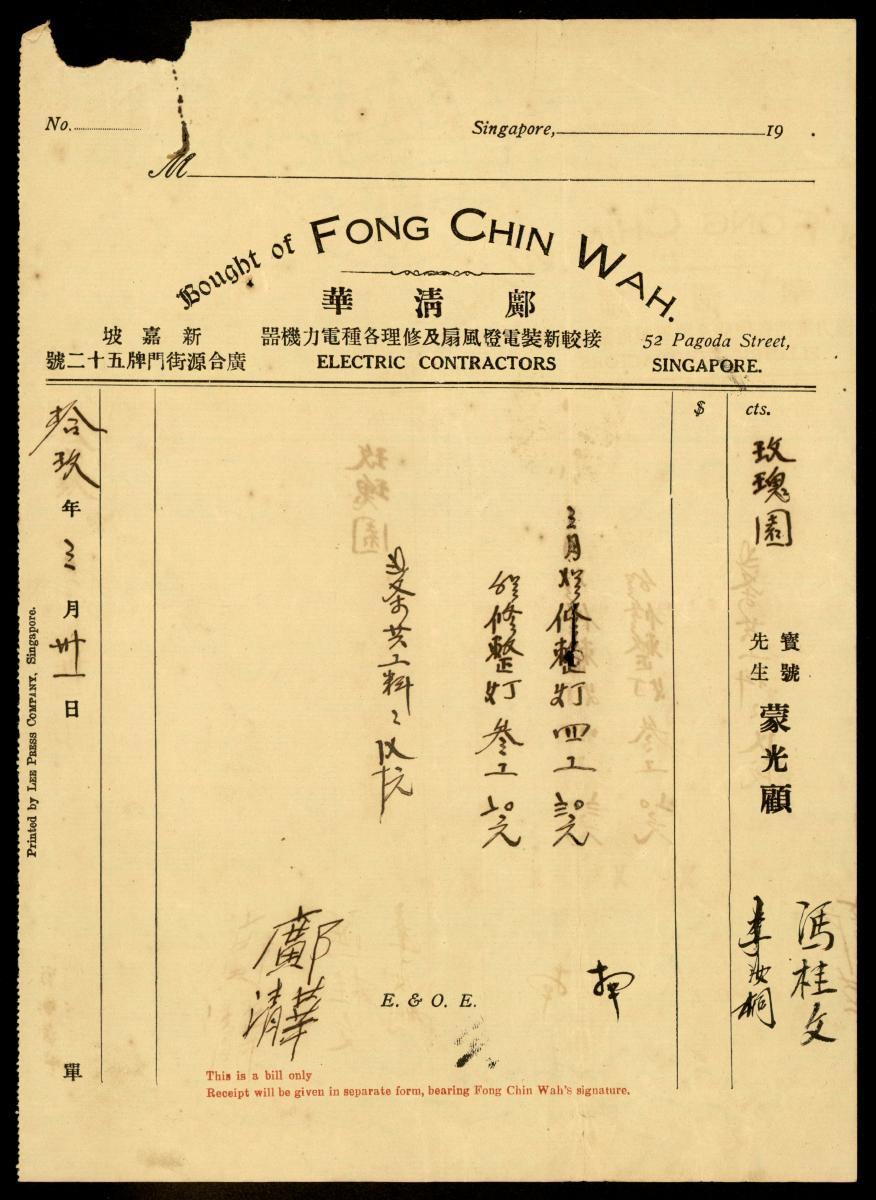 No.
Singapore, 19 .
M
Bought of FONG CHIN WAH.
華清鄺
坡嘉新
器機力電種各理修及扇風燈電裝新較接
52 Pagoda Street,
號二十五牌門街源合廣
ELECTRIC CONTRACTORS
SINGAPORE.
$ cts.
玫瑰園
寶號
先生
蒙光顧
馮桂文
李汝桐
三月
修整灯四工
修整灯叁工
条共工料
押
鄺清華
拾玖年三月卅一日
單
E. & O. E.
This is a bill only
Receipt will be given in separate form, bearing Fong Chin Wah's signature.
Printed by LEE PRESS COMPANY, Singapore.